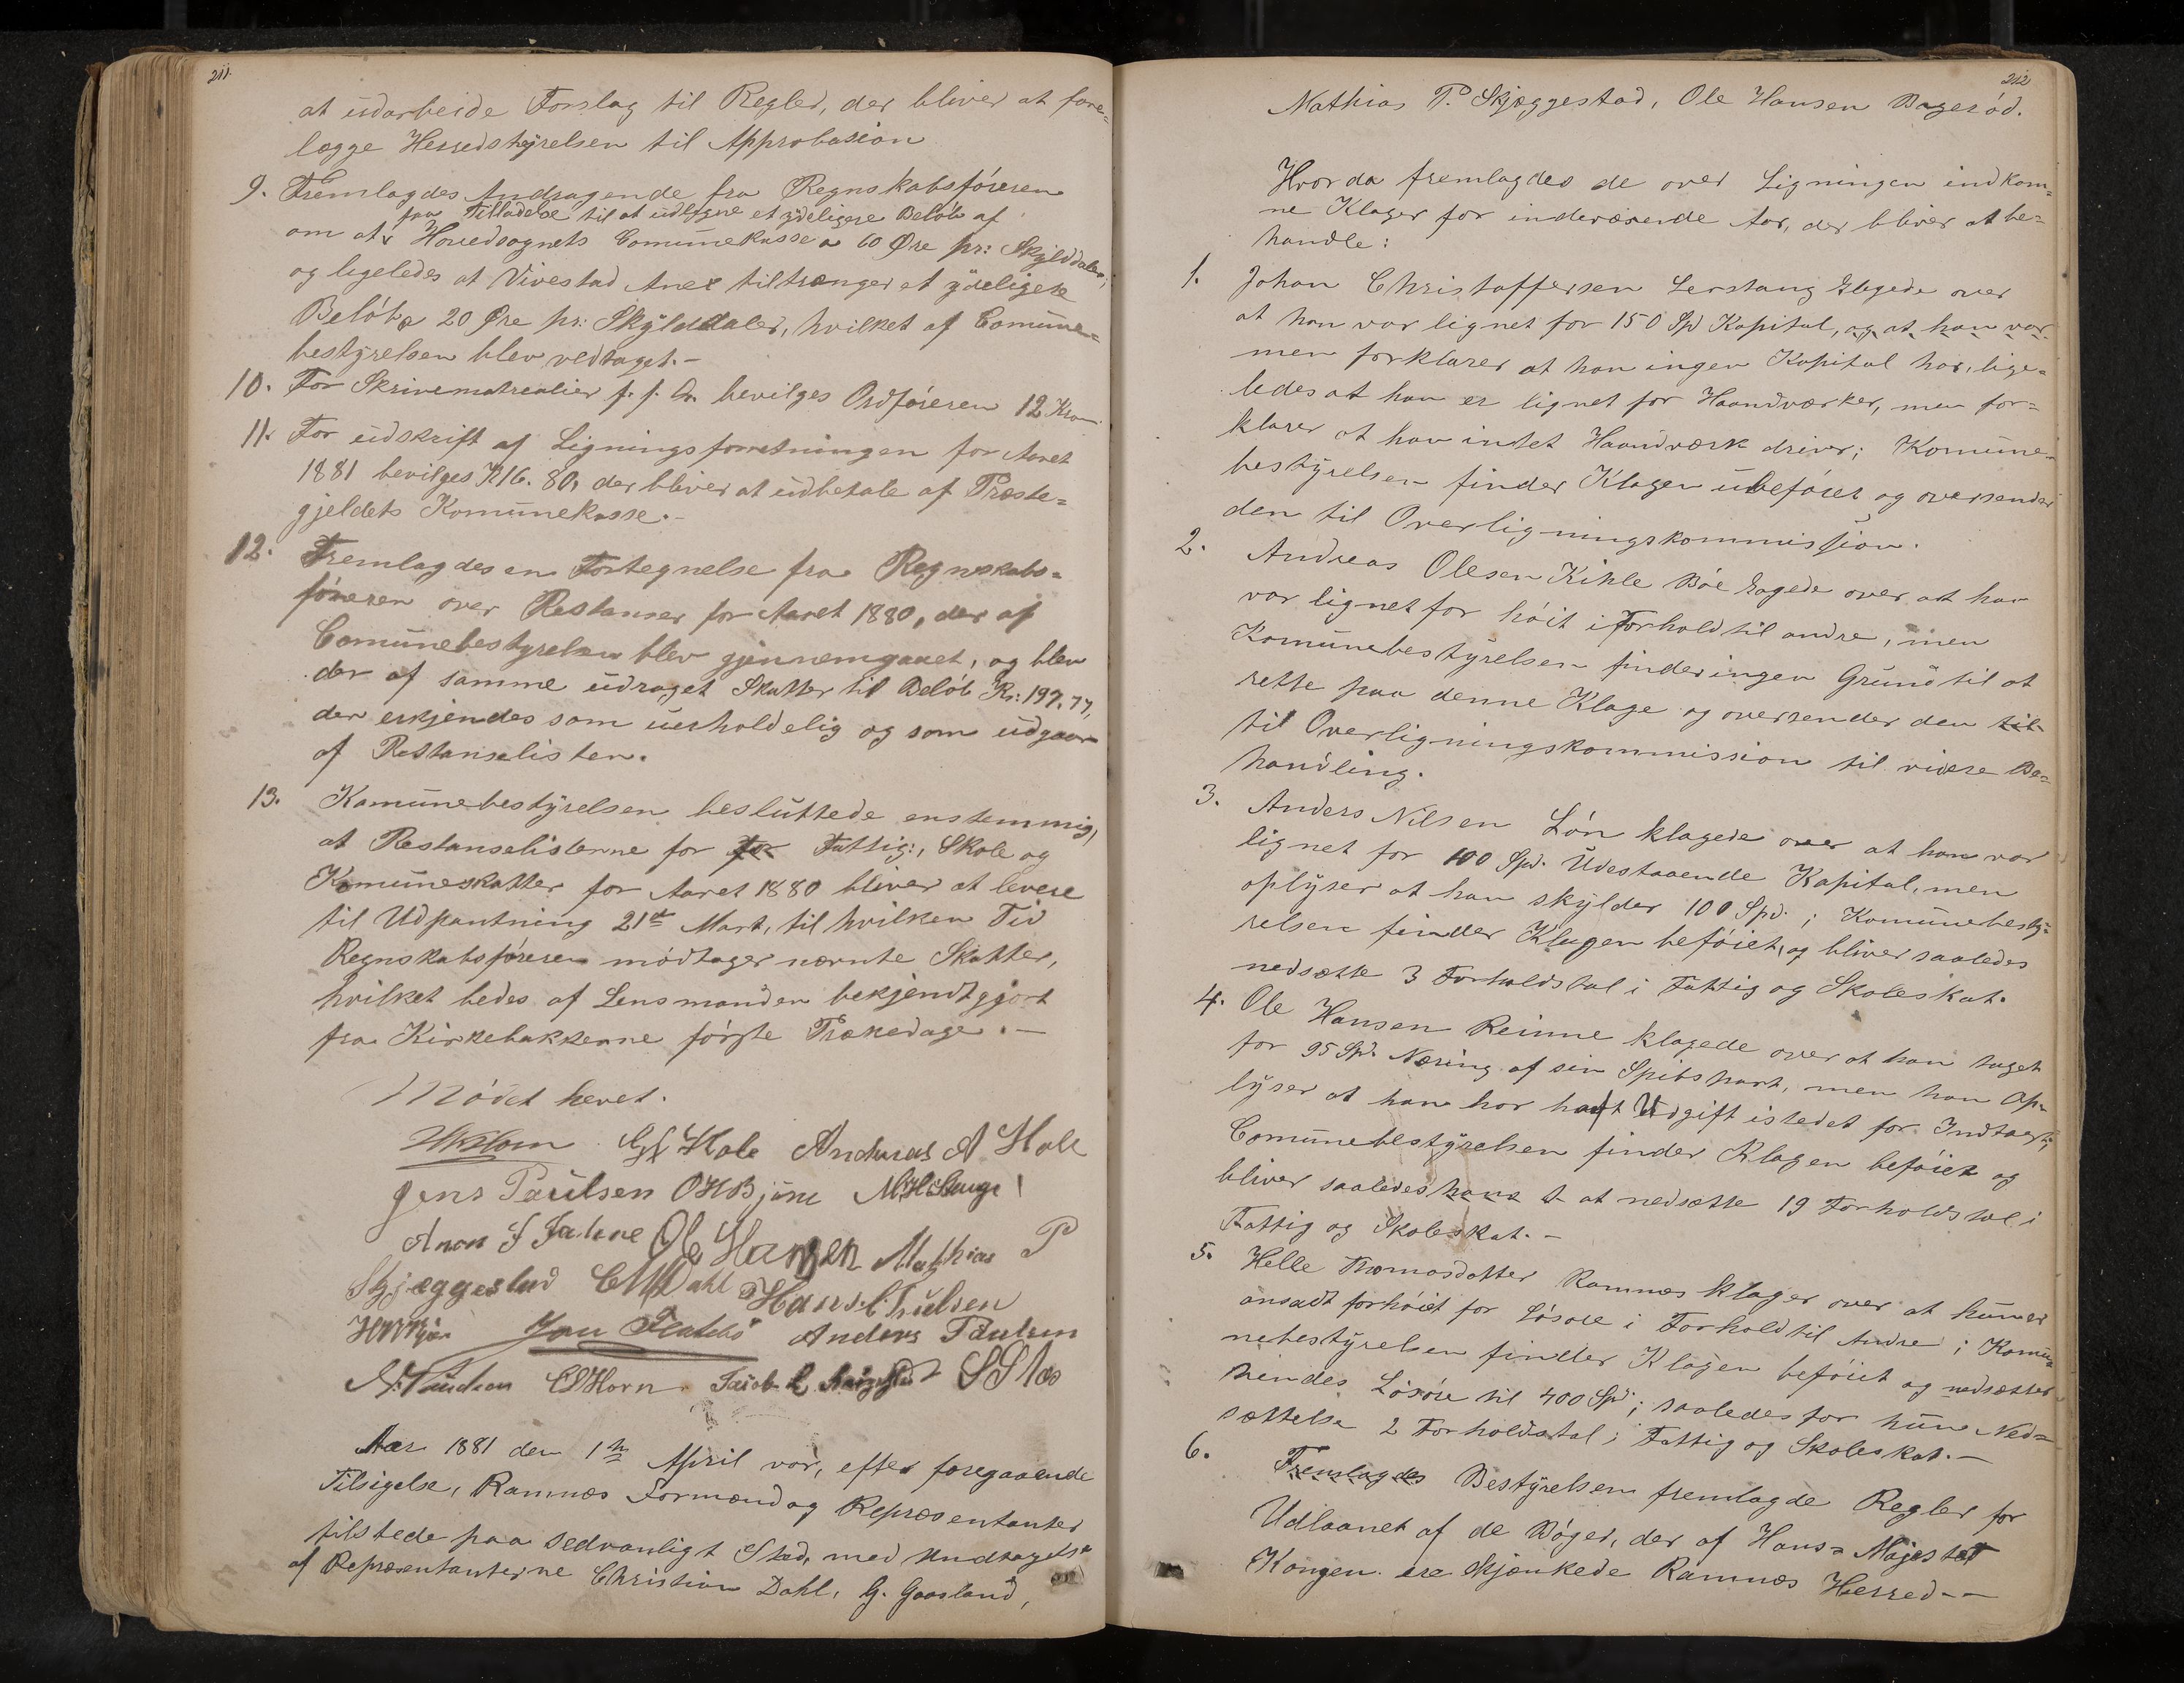 211.
at udarbeide Forslag til Regler, der bliver at fore=
lægge Herredstyrelsen til Approbasion
9. Fremlagdes Andragende fra Regnskabsføreren
faa Tilladelse til at udligne et yderligere Beløb af
om at Hovedsognets Comunekasse a 60 Øre pr: Skylddaler,
og ligeledes at Vivestad Anex tiltrænger et yderligere
Beløb a 20 Øre pr: Skylddaler, hvilket af Comune=
bestyrelsen blev vedtaget.-
10. For Skrivematrealier f. f. A. bevilges Ordføreren 12 Kron
11. For udskrift af Ligningsforretningen for Aaret
1881 bevilges K 16. 80, der bliver at udbetale af Præste=
gjeldets Komunekasse.-
12. Fremlagdes en Fortegnelse fra Regnskabs=
føreren over Restanser for Aaret 1880, der af
Comunebestyrelsen blev gjennemgaaet, og blev
der af samme udraget Skatter til Beløb Kr: 197.77,
der erkjendes som uerholdelig og som udgaar
af Restanselisten.
13. Komunebestyrelsen besluttede enstemmig,
at Restanselisterne for for Fattig:, Skole og
Komuneskatter for Aaret 1880 bliver at levere
til Udpantning 21de Mart, til hvilken Tid
Regnskabsføreren modtager nævnte Skatter,
hvilket bedes af Lensmanden bekjendtgjort
fra Kirkebakkerne første Prækedage.-
Mødet hevet.
Hole Andreas A Hole
Jens Paulsen O H Bjune
Ole Hansen Mathias P
Skjæggestad C M Dahl Hans C. Trulsen
Anders Paulsen
C Horn Jacob L.
Aar 1881 den 1te April var, efter foregaaende
Tilsigelse, Ramnæs Formænd og Repræsentanter
tilstede paa sedvanligt Sted, med Undtagelse
af Repræsentanterne Christian Dahl, G. Gaasland,
212
Mathias P. Skjæggestad, Ole Hansen Bagerød.
Hvor da fremlagdes de over Ligningen indkom=
ne Klager for indeværende Aar, der bliver at be=
handle:
1. Johan Christoffersen Lerstang klagede over
at han var lignet for 150 Spd Kapital, og at han var
men forklarer at han ingen Kapital har, lige=
ledes at han er lignet for Haandværker, men for=
klarer at han intet Haandværk driver; Komune=
bestyrelsen finder Klagen ubeføiet og oversender
den til Overligningskommission.
2. Andreas Olesen Kihle Bøe klagede over at han
var lignet for høit i Forhold til andre, men
Komunebestyrelsen finder ingen Grund til at
rette paa denne Klage og oversender den til
til Overligningskommission til videre Be=
handling.
3. Anders Nilsen Løn klagede over at han var
lignet for 100 Spd. Udestaaende Kapital, men
oplyser at han skylder 100 Spd.; Komunebesty=
relsen finder Klagen beføiet, og bliver saaledes
nedsætte 3 Forholdstal i Fattig og Skoleskat.
4. Ole Hansen Reinne klagede over at han taget
for 95 Spd. Næring af sin Spitspart, men han Op=
lyser at han har havt Udgift istedet for Indtægt;
Comunebestyrelsen finder Klagen beføiet og
bliver saaledes hans t at nedsætte 19 Forholdstal i
Fattig og Skoleskat.-
5. Helle Thomasdatter Ramnæs klager over at hun er
ansadt forhøiet for Løsøre i Forhold til Andre; Komu=
nebestyrelsen finder Klagen beføiet og nedsætter
hindes Løsøre til 400 Spd; saaledes for hune Ned=
sættelse 2 Forholdstal i Fattig og Skoleskat.-
6. Fremlagdes Bestyrelsen fremlagde Regler for
Udlaanet af de Bøger, der af Hans= Majestæt
Kongen ere skjænkede Ramnæs Herred--